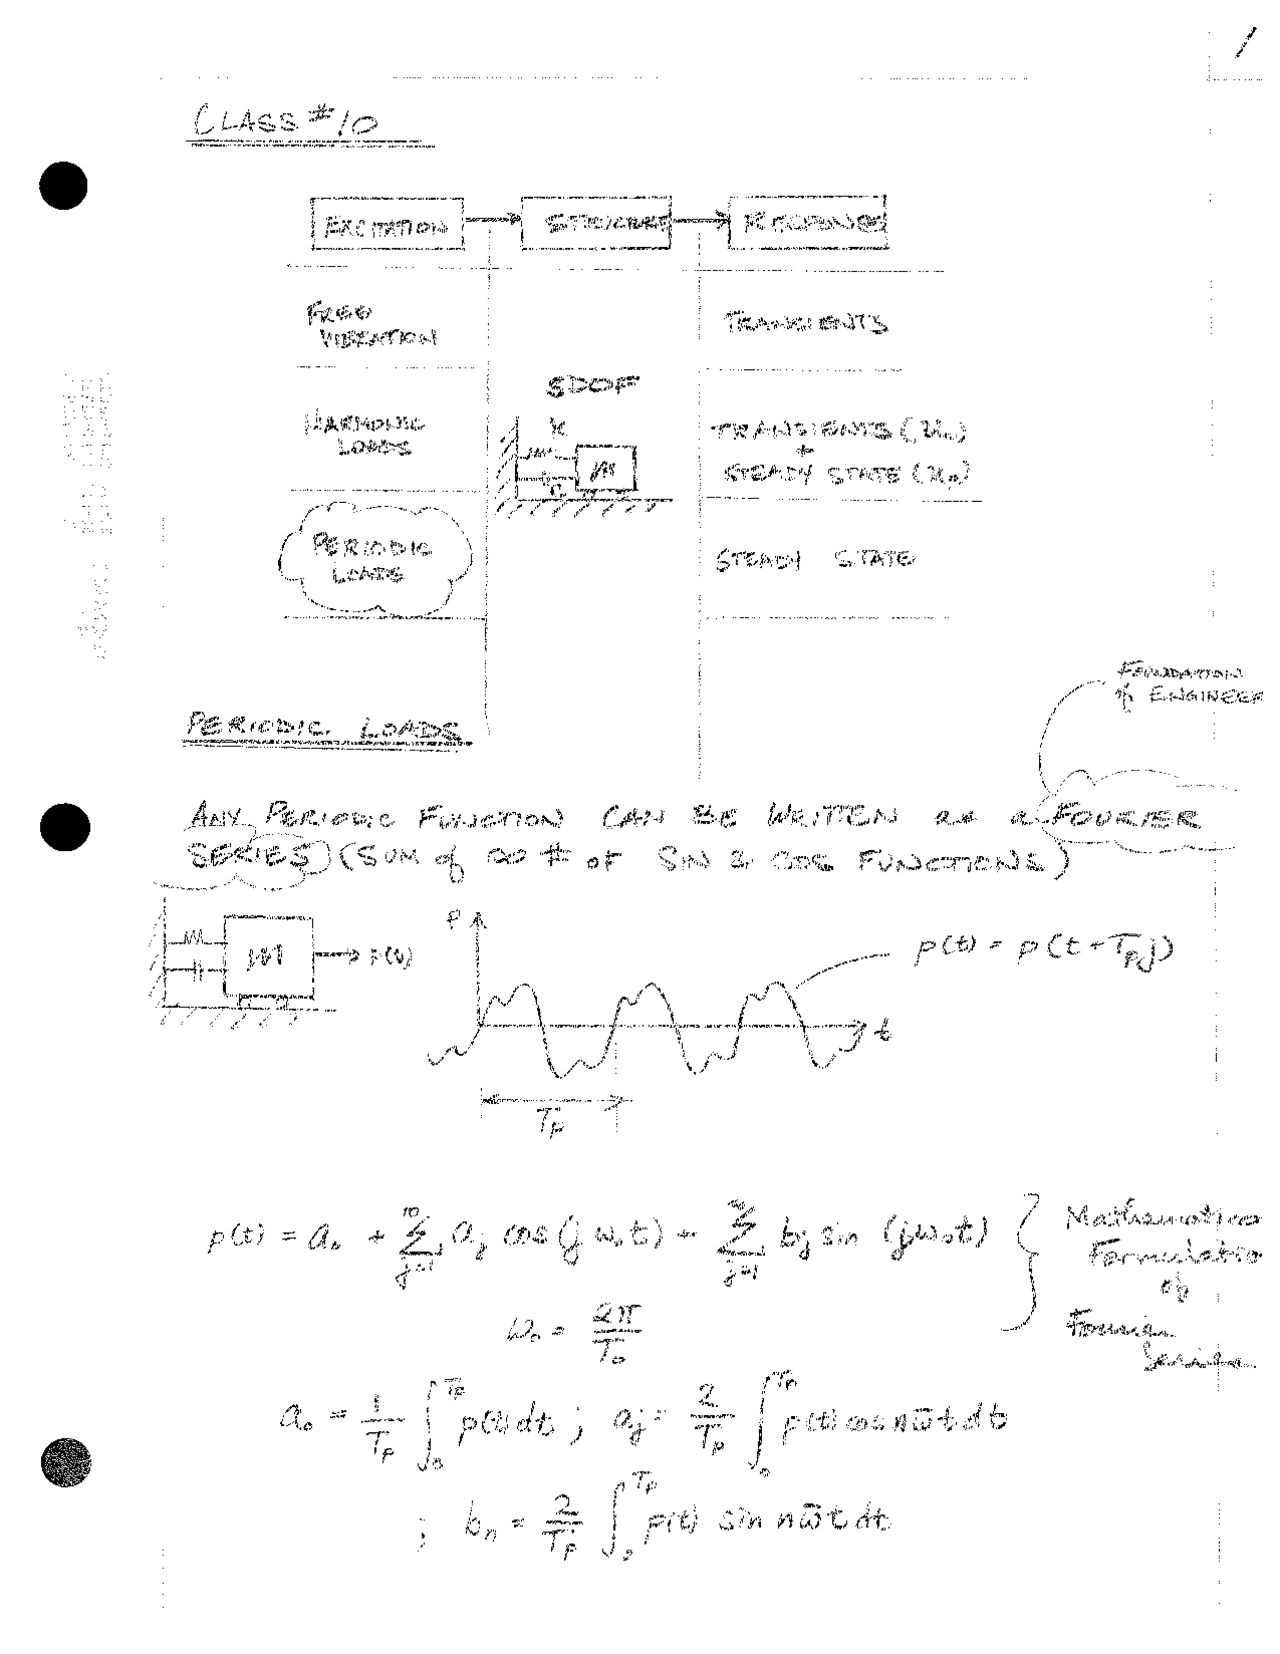 1
CLASS #10
EXCITATION
STRUCTURE
RESPONSE
FREE
VIBRATION
TRANSIENTS
SDOF
HARMONIC
LOADS
k
m
c
TRANSIENTS (u_c)
+
STEADY STATE (u_p)
PERIODIC
LOADS
STEADY STATE
FOUNDATION
of ENGINEER
PERIODIC LOADS
ANY PERIODIC FUNCTION CAN BE WRITTEN as a FOURIER
SERIES (SUM of ∞ # OF SIN & COS FUNCTIONS)
m
p(t)
P
p(t) = p(t + T_p j)
t
T_p
p(t) = a_0 + ∑_{j=1}^{∞} a_j cos (j ω_0 t) + ∑_{j=1}^{∞} b_j sin (j ω_0 t)
Mathematica
Formulatio
of
Fourier
Series
ω_0 = 2π/T_0
a_0 = 1/T_p ∫_0^{T_p} p(t) dt ; a_j = 2/T_p ∫_0^{T_p} p(t) cos n ω̄ t dt
; b_n = 2/T_p ∫_0^{T_p} p(t) sin n ω̄ t dt